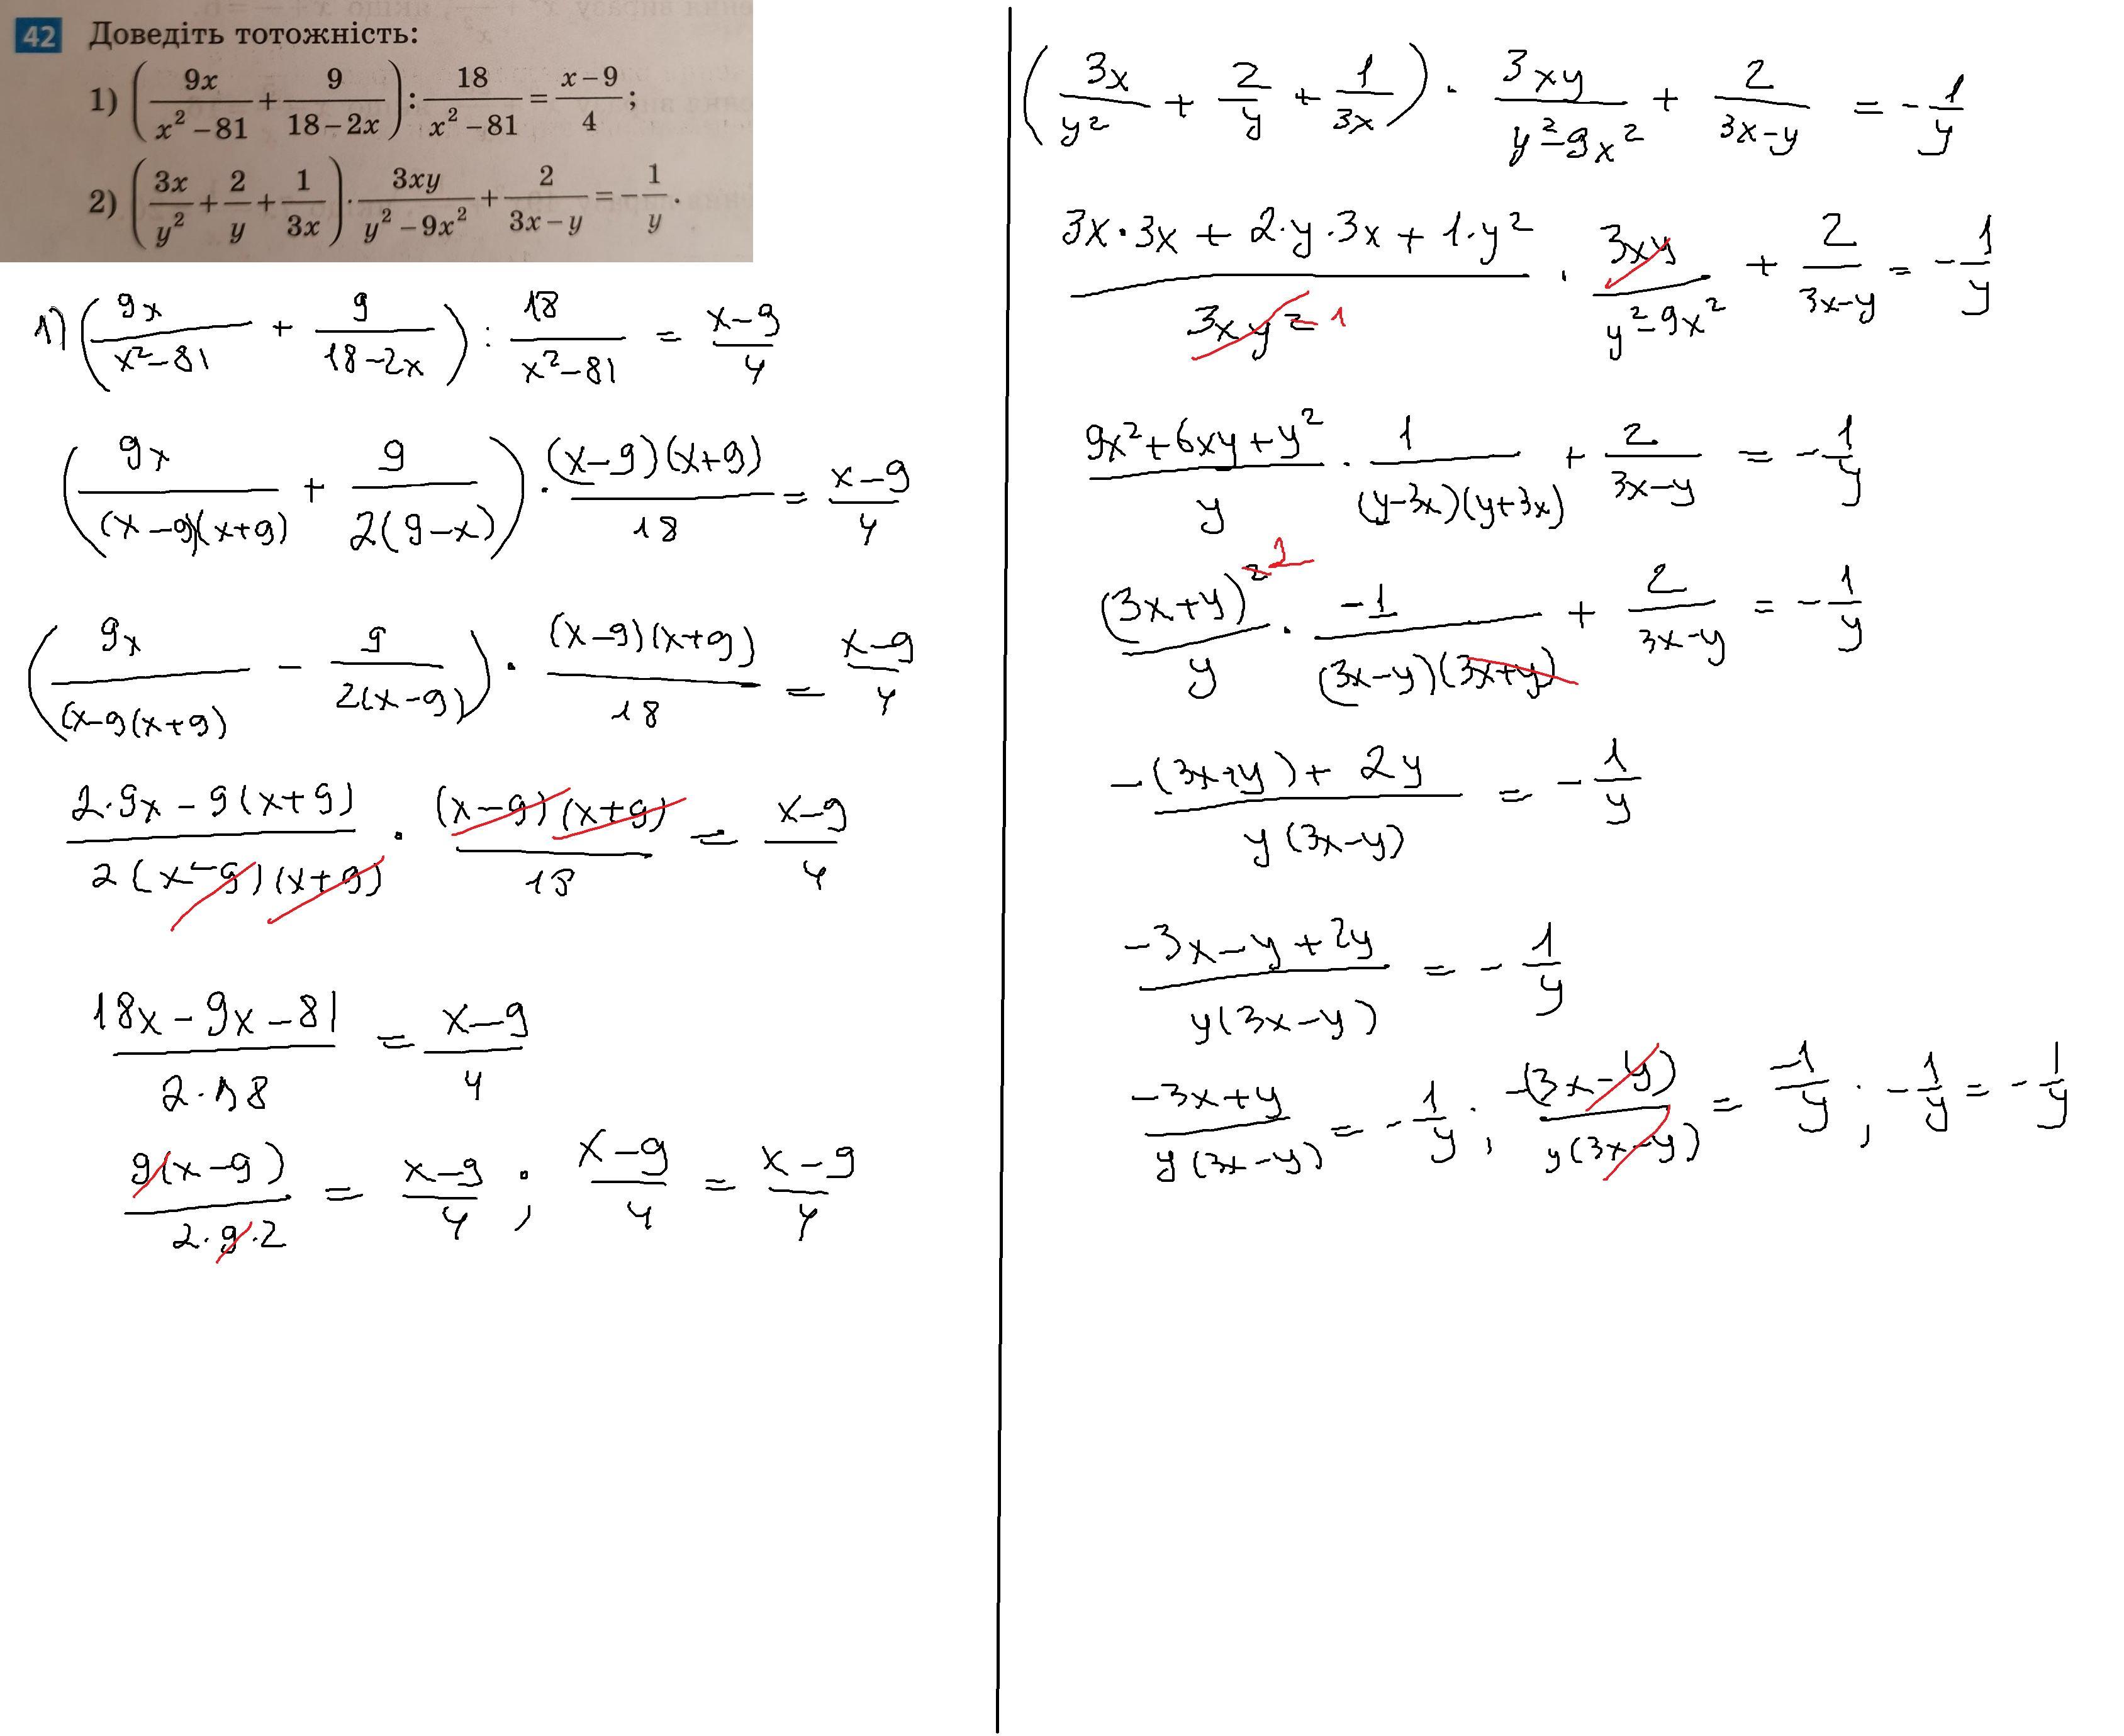 42 Доведіть тотожність:
1) (9x/(x² − 81) + 9/(18 − 2x)) : 18/(x² − 81) = (x − 9)/4;
2) (3x/y² + 2/y + 1/3x) · 3xy/(y² − 9x²) + 2/(3x − y) = −1/y.
1) (9x/(x² − 81) + 9/(18 − 2x)) : 18/(x² − 81) = (x − 9)/4
(9x/((x − 9)(x + 9)) + 9/(2(9 − x))) · (x − 9)(x + 9)/18 = (x − 9)/4
(9x/((x − 9(x + 9)) − 9/(2(x − 9))) · (x − 9)(x + 9)/18 = (x − 9)/4
(2·9x − 9(x + 9))/(2(x − 9)(x + 9)) · (x − 9)(x + 9)/18 = (x − 9)/4
(18x − 9x − 81)/(2·18) = (x − 9)/4
9(x − 9)/(2·9·2) = (x − 9)/4 ; (x − 9)/4 = (x − 9)/4
(3x/y² + 2/y + 1/3x) · 3xy/(y² − 9x²) + 2/(3x − y) = −1/y
(3x·3x + 2·y·3x + 1·y²)/(3xy² 1) · 3xy/(y² − 9x²) + 2/(3x − y) = −1/y
(9x² + 6xy + y²)/y · 1/((y − 3x)(y + 3x)) + 2/(3x − y) = −1/y
(3x + y)² 1/y · −1/((3x − y)(3x + y)) + 2/(3x − y) = −1/y
(−(3x + y) + 2y)/(y(3x − y)) = −1/y
(−3x − y + 2y)/(y(3x − y)) = −1/y
(−3x + y)/(y(3x − y)) = −1/y ; −(3x − y)/(y(3x − y)) = −1/y ; −1/y = −1/y